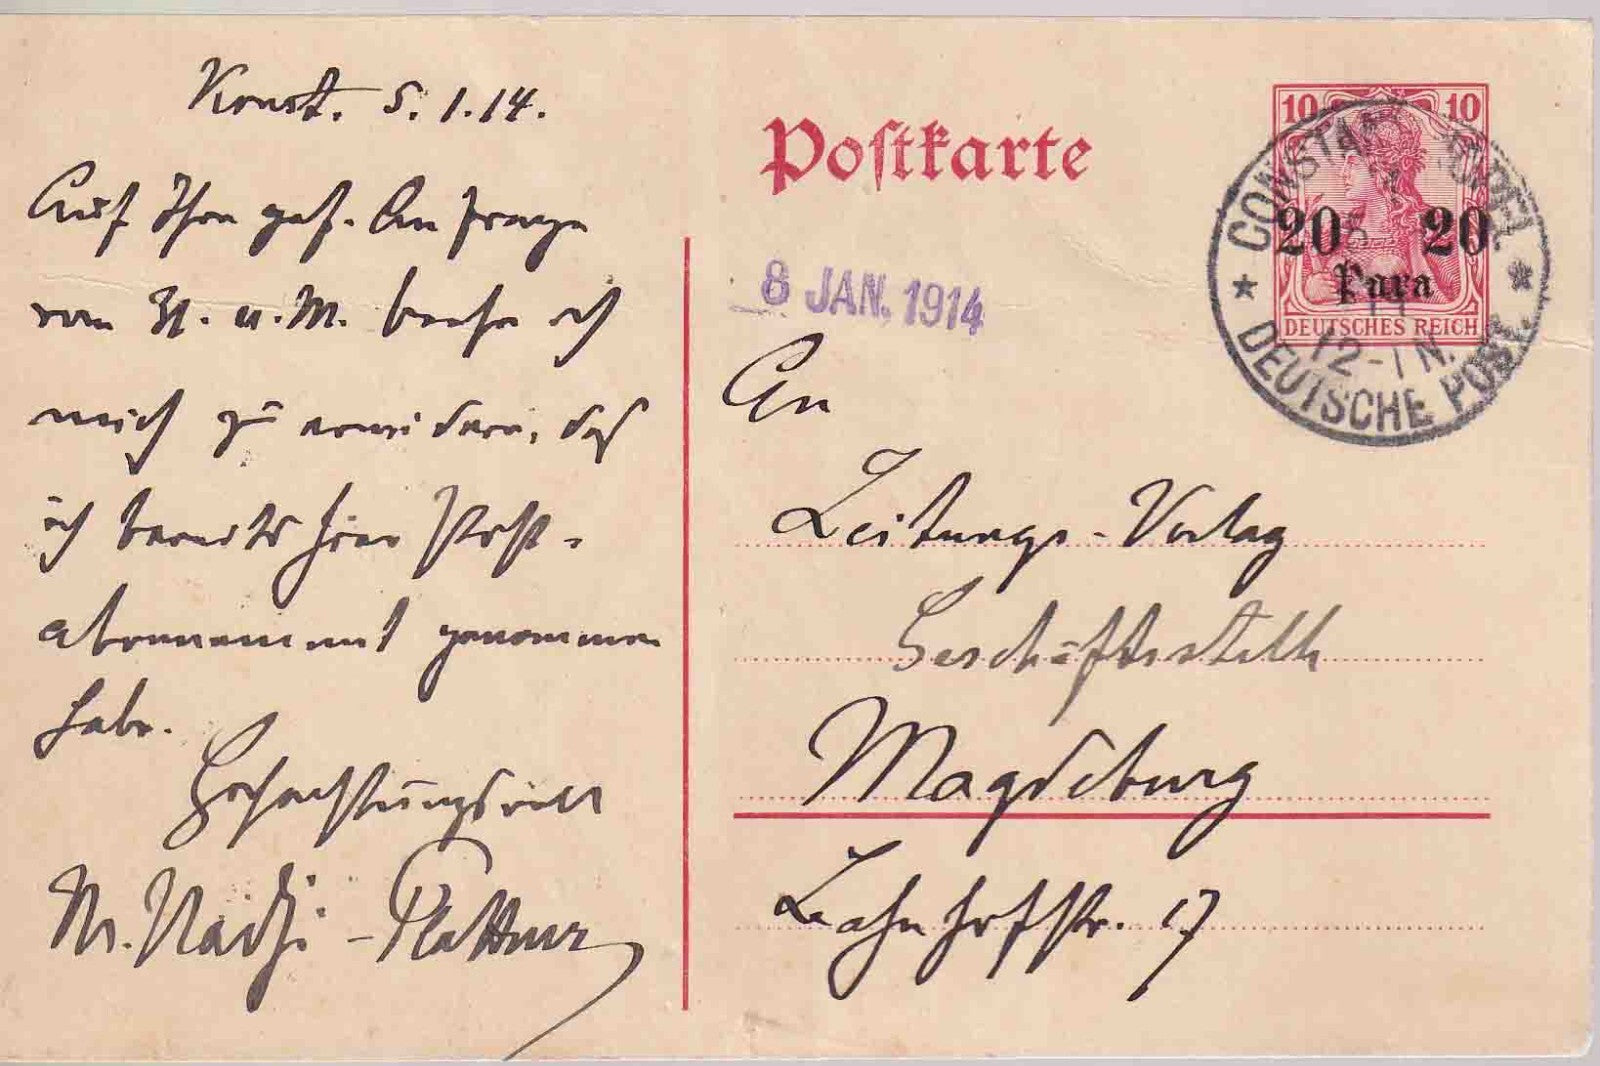 Konst. 5.1.14.
Auf Ihre gef. Anfrage
vom 31. u. M. beehre ich
mich zu erwidern, daß
ich bereits hier Post-
abonnement genommen
habe.
Hochachtungsvoll
M. Nadji-Plattner
Postkarte
8 JAN. 1914
An
Zeitungs-Verlag
Geschäftsstelle
Magdeburg
Bahnhofstr. 17
10 10
20 20
Para
DEUTSCHES REICH
CONSTANTINOPEL
5
1
14
12-1 N.
* DEUTSCHE POST *